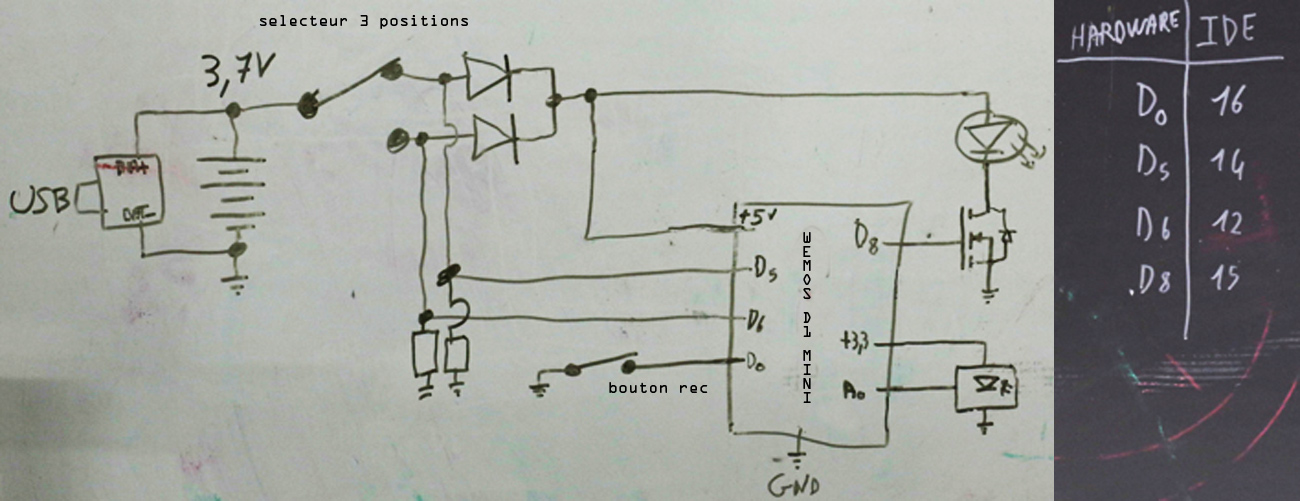 selecteur 3 positions
3,7V
USB
BAT+
BAT-
+5V
D5
D6
D0
WEMOS D1 MINI
D8
+3,3
A0
bouton rec
GND
HARDWARE IDE
D0 16
D5 14
D6 12
D8 15